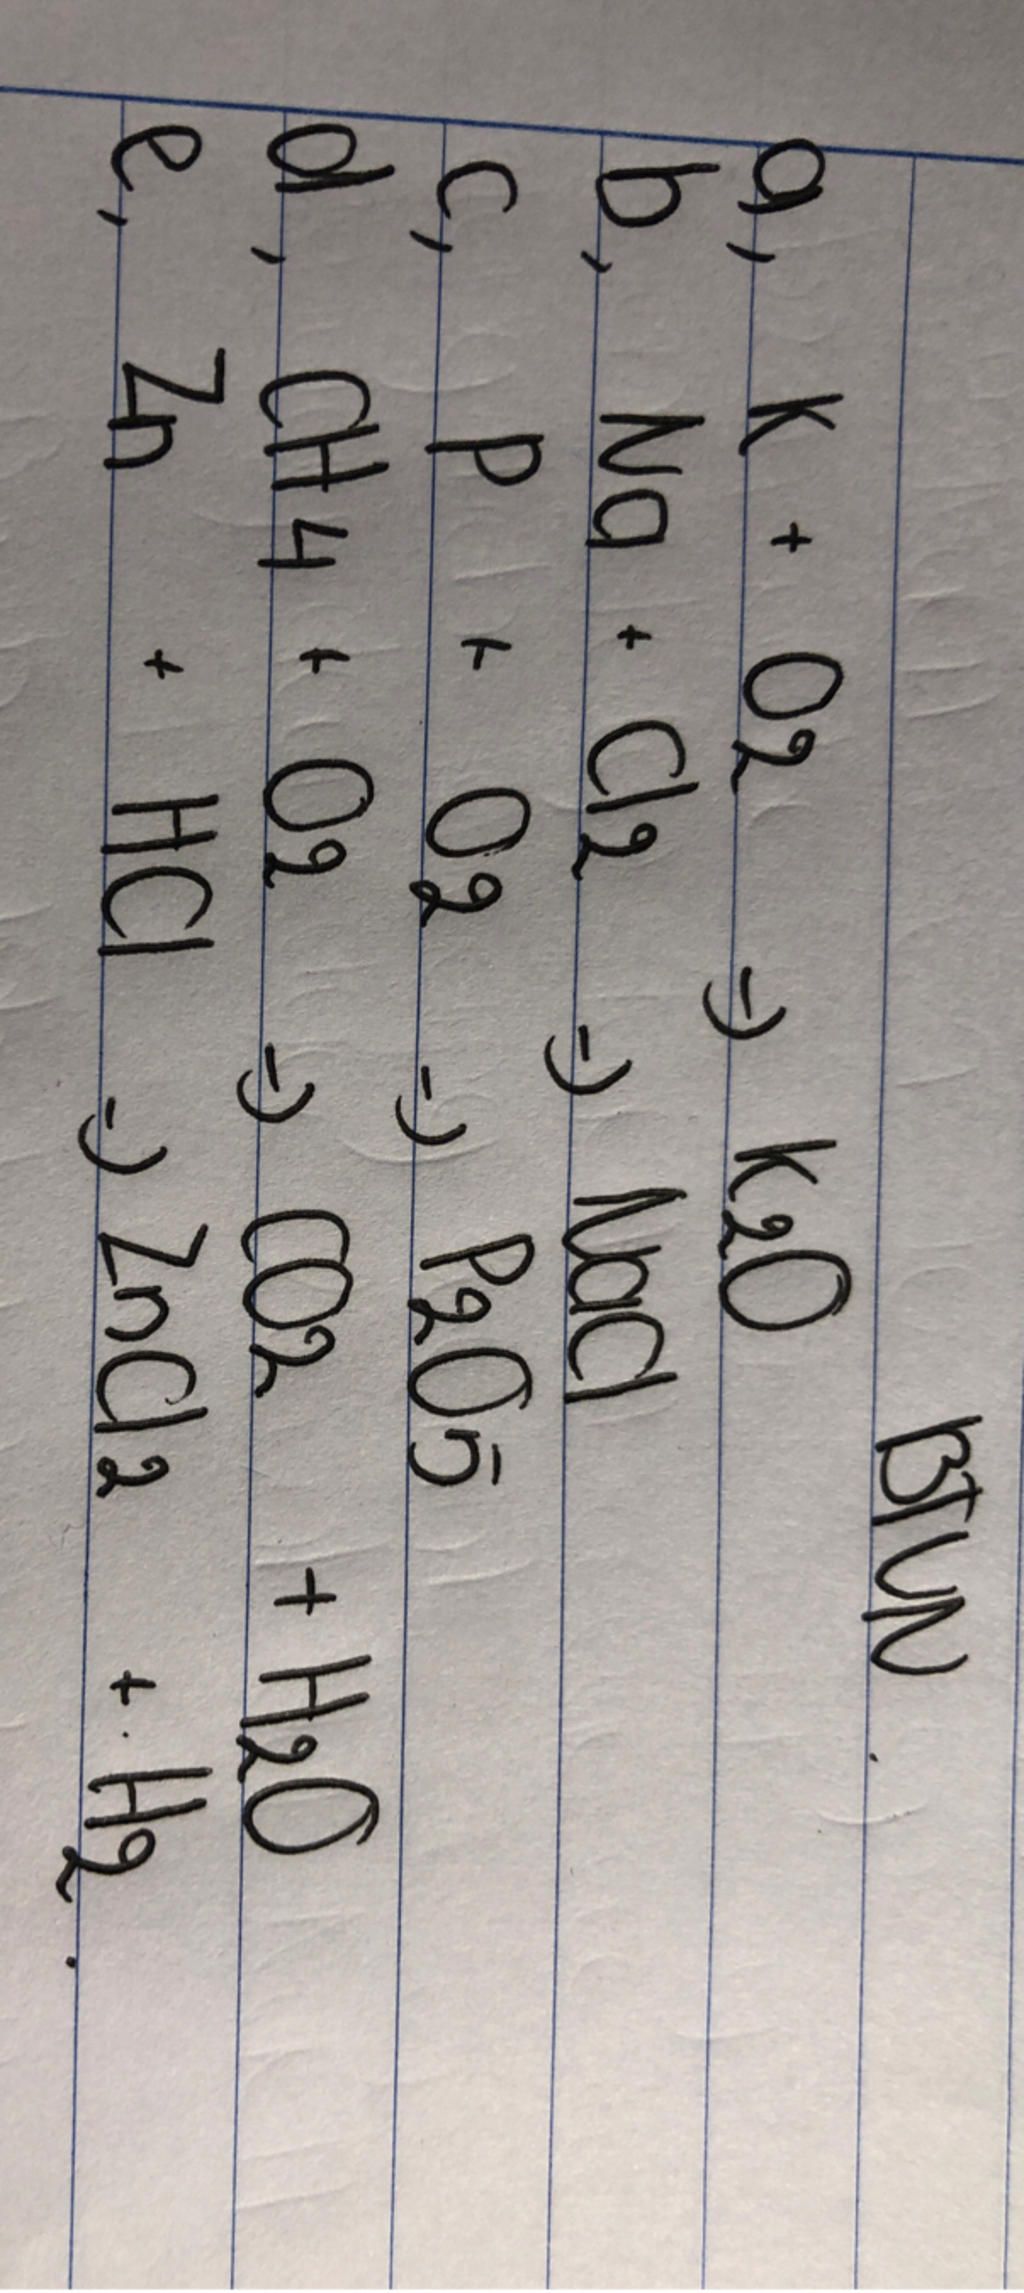 BTVN
a, K + O2 → K2O
b, Na + Cl2 → NaCl
c, P + O2 → P2O5
d, CH4 + O2 → CO2 + H2O
e, Zn + HCl → ZnCl2 + H2.